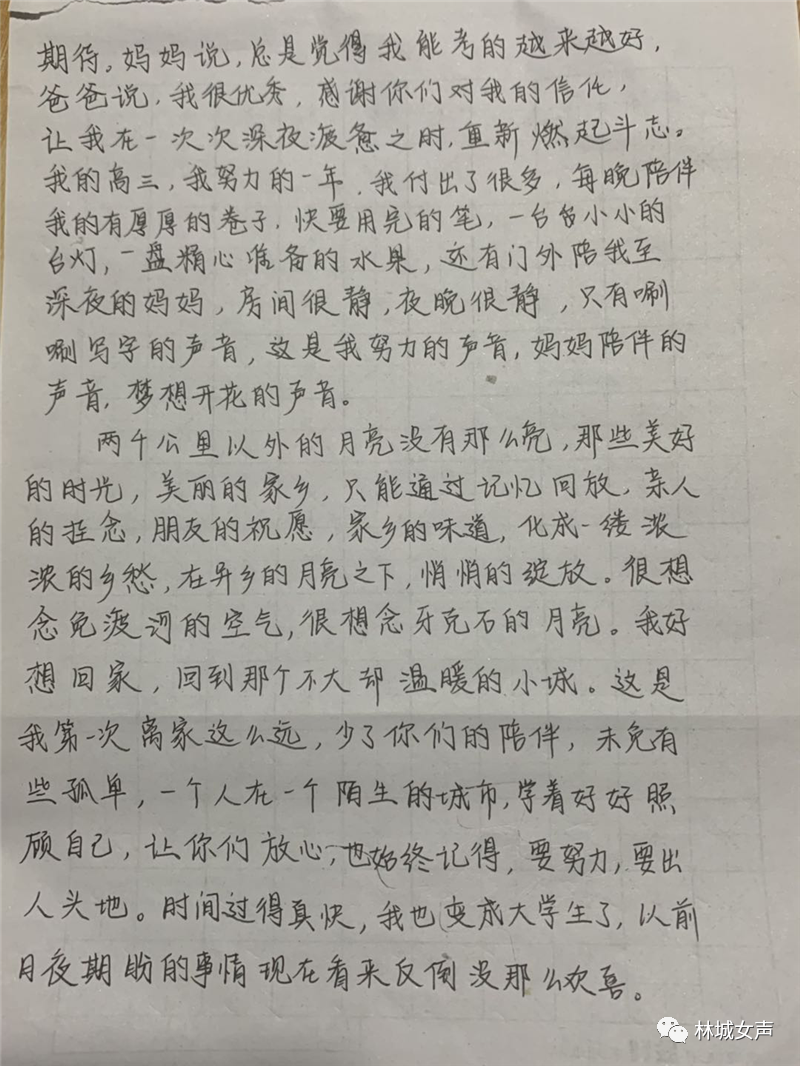 期待。妈妈说,总是觉得我能考的越来越好,
爸爸说,我很优秀,感谢你们对我的信任,
让我在一次次深夜疲惫之时,重新燃起斗志。
我的高三,我努力的一年,我付出了很多,每晚陪伴
我的有厚厚的卷子,快要用完的笔,一台台小小的
台灯,一盘精心准备的水果,还有门外陪我至
深夜的妈妈,房间很静,夜晚很静,只有唰
唰写字的声音,这是我努力的声音,妈妈陪伴的
声音,梦想开花的声音。
两千公里以外的月亮没有那么亮,那些美好
的时光,美丽的家乡,只能通过记忆回放,亲人
的挂念,朋友的祝愿,家乡的味道,化成一缕浓
浓的乡愁,在异乡的月亮之下,悄悄的绽放。很想
念免渡河的空气,很想念牙克石的月亮。我好
想回家,回到那个不大却温暖的小城。这是
我第一次离家这么远,少了你们的陪伴,未免有
些孤单,一个人在一个陌生的城市,学着好好照
顾自己,让你们放心,也始终记得,要努力,要出
人头地。时间过得真快,我也变成大学生了,以前
日夜期盼的事情现在看来反倒没那么欢喜。
林城女声